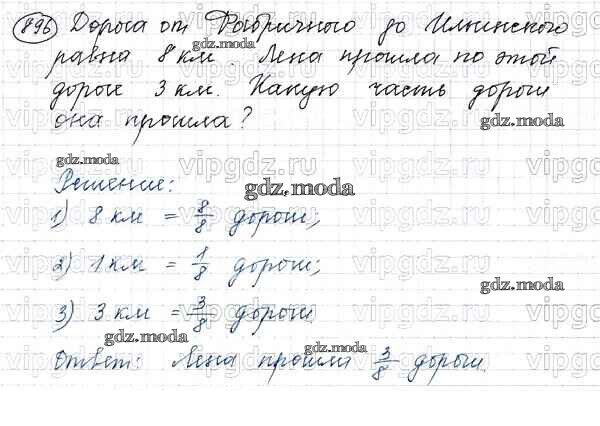 896 Дорога от Фабричного до Ильинского
равна 8 км. Лена прошла по этой
дороге 3 км. Какую часть дороги
она прошла?
gdz.moda
Решение:
gdz.moda
1) 8 км = 8/8 дороги;
gdz.moda
2) 1 км = 1/8 дороги;
gdz.moda
3) 3 км = 3/8 дороги.
gdz.moda
Ответ: Лена прошла 3/8 дороги.
gdz.moda
vipgdz.ru